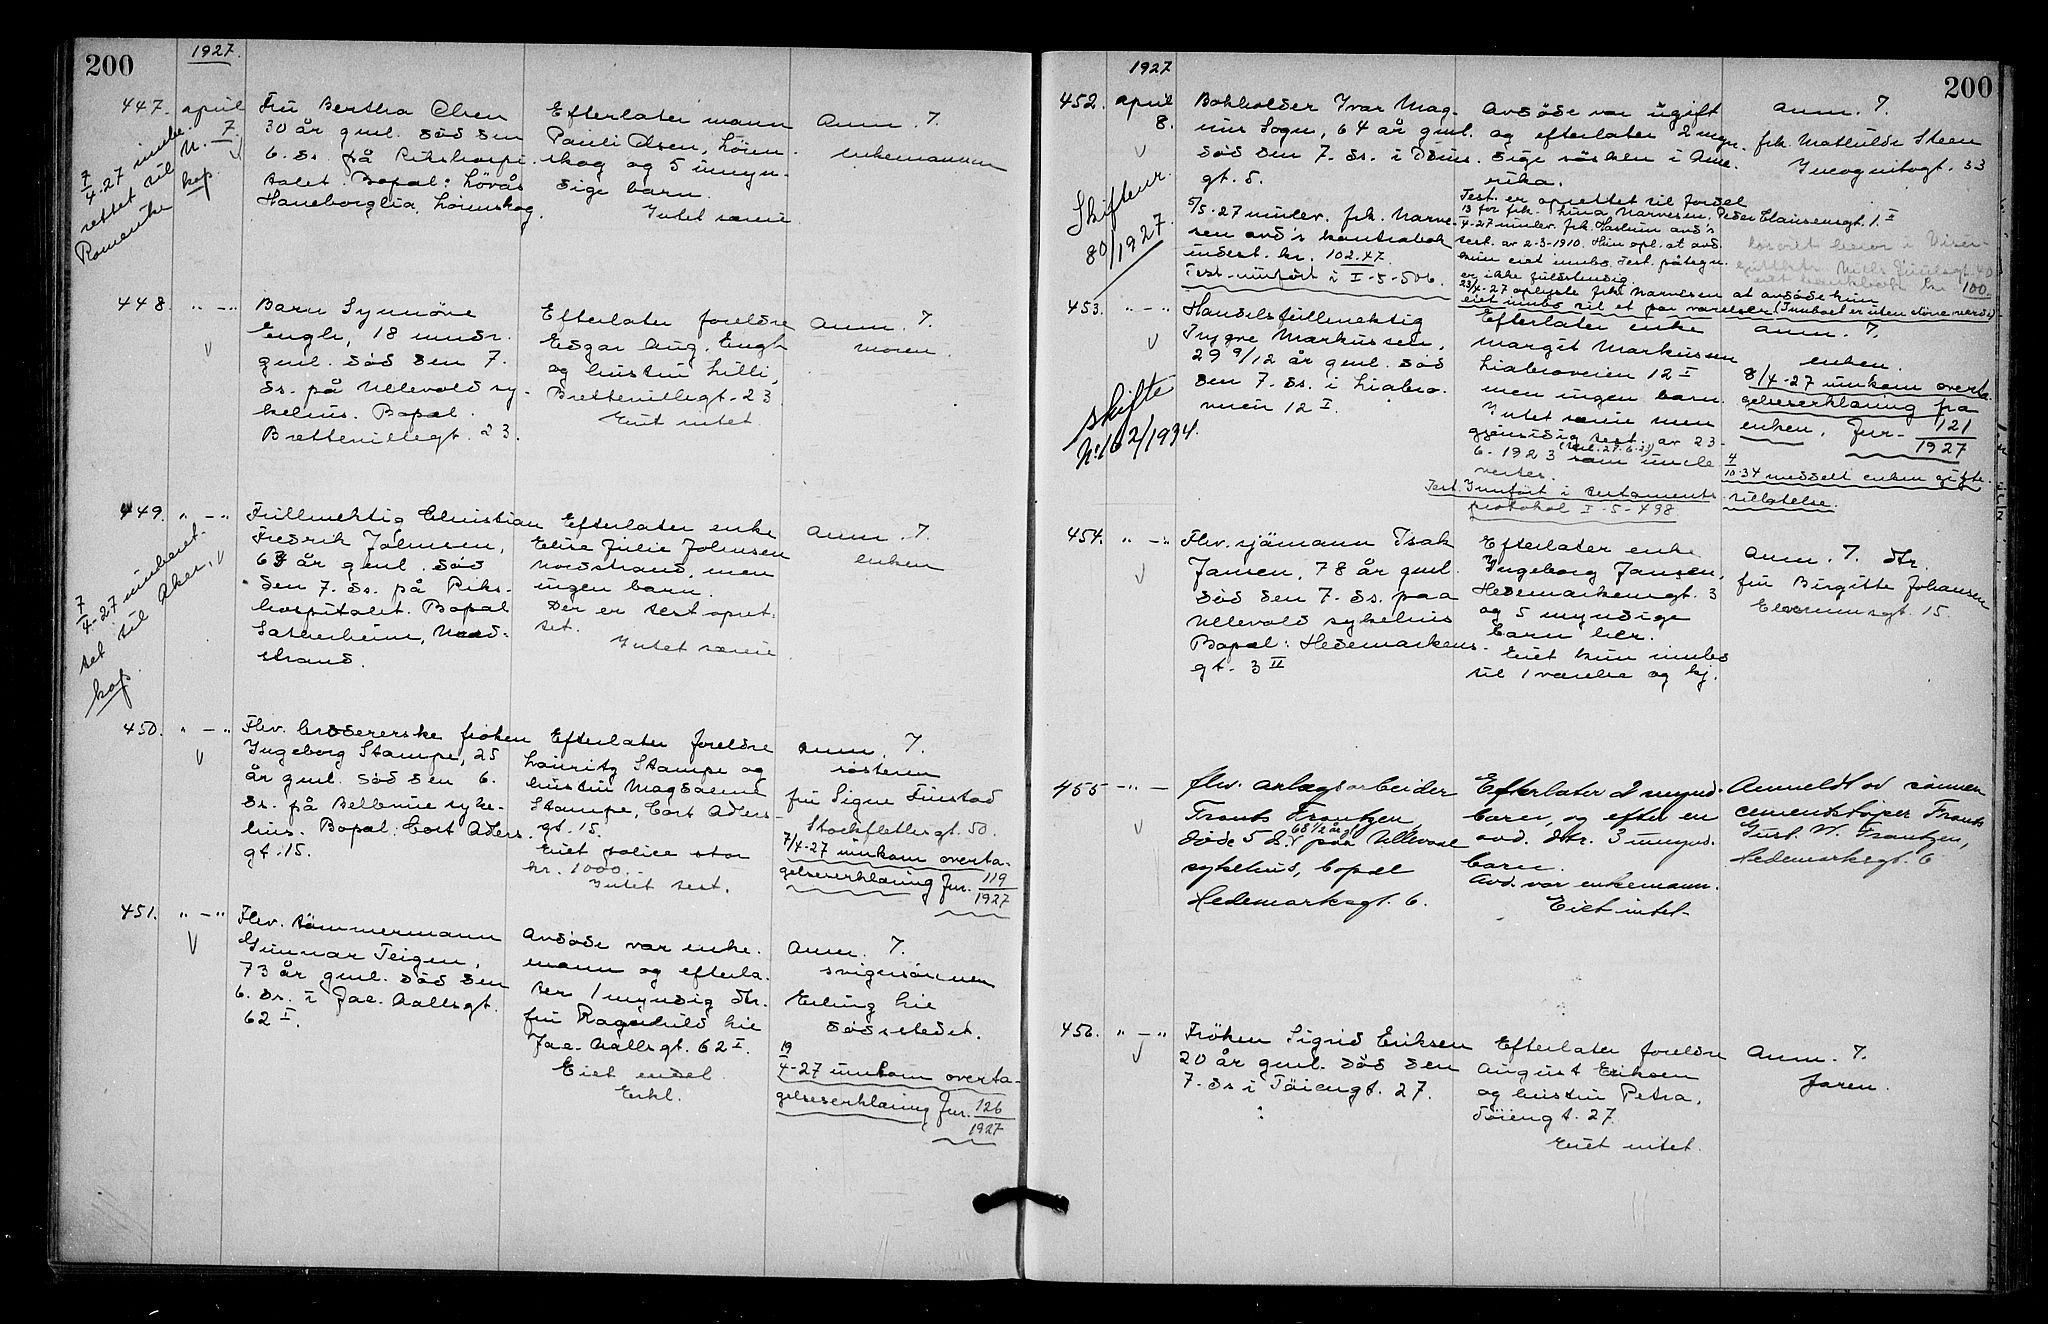 200
1927
447. april 7.
7/4-27 innbe-
rettet til
Romerike
kop.
Fru Bertha Olsen
30 år gml. död den
6. ds. på Rikshospi-
talet. Bopal: Lövås
Haneborglia, Lörenskog.
Efterlater mann
Pauli Olsen, Lören-
skog og 5 umyn-
dige barn.
Intet særeie
Anm. 7.
enkemannen
448. " — "
Barn Synnöve
Engh, 18 mndr.
gml. död den 7.
ds. på Ullevold sy-
kehus. Bopal.
Brettevillegt. 23.
Efterlater foreldre
Edgar Aug. Engh
og hustru Lilli,
Brettevillegt. 23
Eiet intet.
Anm. 7.
moren.
449. " — "
7/4-27 innberet-
tet til Aker.
kop.
Fullmektig Christian
Fredrik Johnsen,
år gml. död
den 7. ds. på Riks-
hospitalet. Bopal
Nord-
strand.
Efterlater enke
Elise Julie Johnsen
Nordstrand, men
ingen barn.
Der er test. opret-
tet.
Intet særeie
Anm. 7.
enken
450. " — "
Fhv. brodererske fröken
Ingeborg Stampe, 25
år gml. död den 6.
ds. på Bellevue syke-
hus. Bopal: Cort Adlers
gt. 15.
Efterlater foreldre
Lauritz Stampe og
hustru Magdalene
Stampe, Cort Adlers-
gt. 15.
Eiet police stor
kr. 1000.-
Intet test.
Anm. 7.
søsteren
fru Signe Finstad
Stockflethsgt. 50.
7/4-27 innkom overta-
gelseserklæring Jnr. 119/1927
451. " — "
Fhv. tömmermann
Gunnar Teigen,
73 år gml. död den
6. ds. i Jac. Aallsgt.
62 I.
Avdöde var enke-
mann og efterla-
ter 1 myndig dtr.
fru Ragnhild Lie
Jac. Aallsgt. 62 I.
Eiet endel
Erkl.
Anm. 7.
svigersönnen
Erling Lie
dödsstedet.
19/4-27 innkom overta-
gelseserklæring Jnr. 126/1927
200
1927
452. april 8.
Skiftenr.
80/1927
Bokholder Ivar Mag-
nus Sogn, 64 år gml.
död den 7. ds. i
gt. 5.
5/5-27 innlev. frk. Narve-
sen avd's kontrabok
indest. kr. 102.47.
Test. innført i I-5-506.
Avdöde var ugift
og efterlater 2 myn-
dige søsken i Ame-
rika.
Test. er oprettet til fordel
for frk. Lina Narvesen, Peder Clausensgt. 1 I
test. av 2-3-1910. Hun opl. at avd.
kun eiet innbo. Test. påtegn.
er ikke fuldstendig.
23/4-27 oplyste frk. Narvesen at avdöde kun
eiet innbo til et par værelser (Innboet er uten större verdi)
anm. 7.
frk. Mathilde Steen
Incognitogt. 33
100
453. " — "
Skifte
Nr. 62/1934.
Handelsfullmektig
Trygve Markussen,
29 9/12 år gml. död
den 7. ds. i Liabro-
veien 12 I.
Efterlater enke
Margit Markussen
Liabroveien 12 I
men ingen barn.
Intet særeie men
gjensidig test. av 23-
6-1923 som innle-
veres.
Test. Innført i testaments-
protokol I-5-498.
anm. 7.
enken.
8/4-27 innkom overta-
gelseserklæring fra
enken. Jnr. 121/1927
4/10-34 meddelt enken gifte-
tillatelse.
454. " — "
Fhv. sjömann Isak
Jansen, 78 år gml.
död den 7. ds. paa
Ullevold sykehus
Bopæl: Hedemarkens-
gt. 3 II
Efterlater enke
Ingeborg Jansen,
Hedemarkensgt. 3
og 5 myndige
barn her.
Eiet kun innbo
til 1 værelse og kj.
Anm. 7. dtr.
fru Birgitte Johansen
Elverumsgt. 15.
455 — " —
fhv. anlægsarbeider
Frants Frantzen,
68 1/2 år gl.
döde 5 ds. paa Ullevoll
sykehus, bopæl
Hedemarksgt. 6.
Efterlater 2 mynd.
barn, og efter en
avd. dtr. 3 umynd.
barn.
Avd. var enkemann.
Eiet intet-
Anmeldt av sönnen
cementstöper Frants
Gust. W. Frantzen,
Hedemarksgt. 6
456. " — "
Fröken Sigrid Eriksen
20 år gml. död den
7. ds i Töiengt. 27.
Efterlater foreldre
August Eriksen
og hustru Petra,
Töiengt. 27.
Eiet intet.
Anm. 7.
faren.